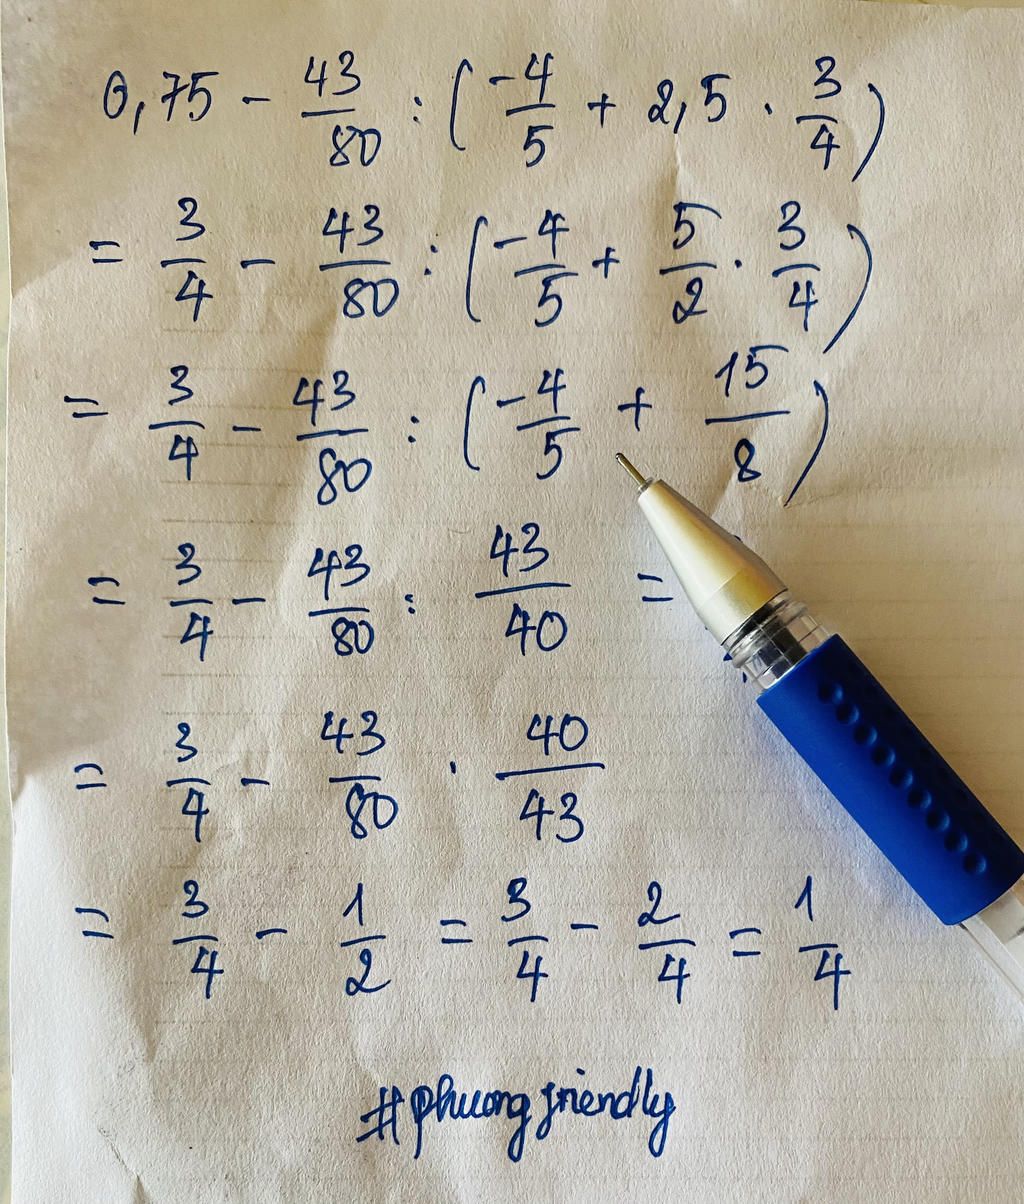 0,75 - 43/80 : (-4/5 + 2,5 . 3/4)
= 3/4 - 43/80 : (-4/5 + 5/2 . 3/4)
= 3/4 - 43/80 : (-4/5 + 15/8)
= 3/4 - 43/80 : 43/40 =
= 3/4 - 43/80 . 40/43
= 3/4 - 1/2 = 3/4 - 2/4 = 1/4
#phuongfriendly